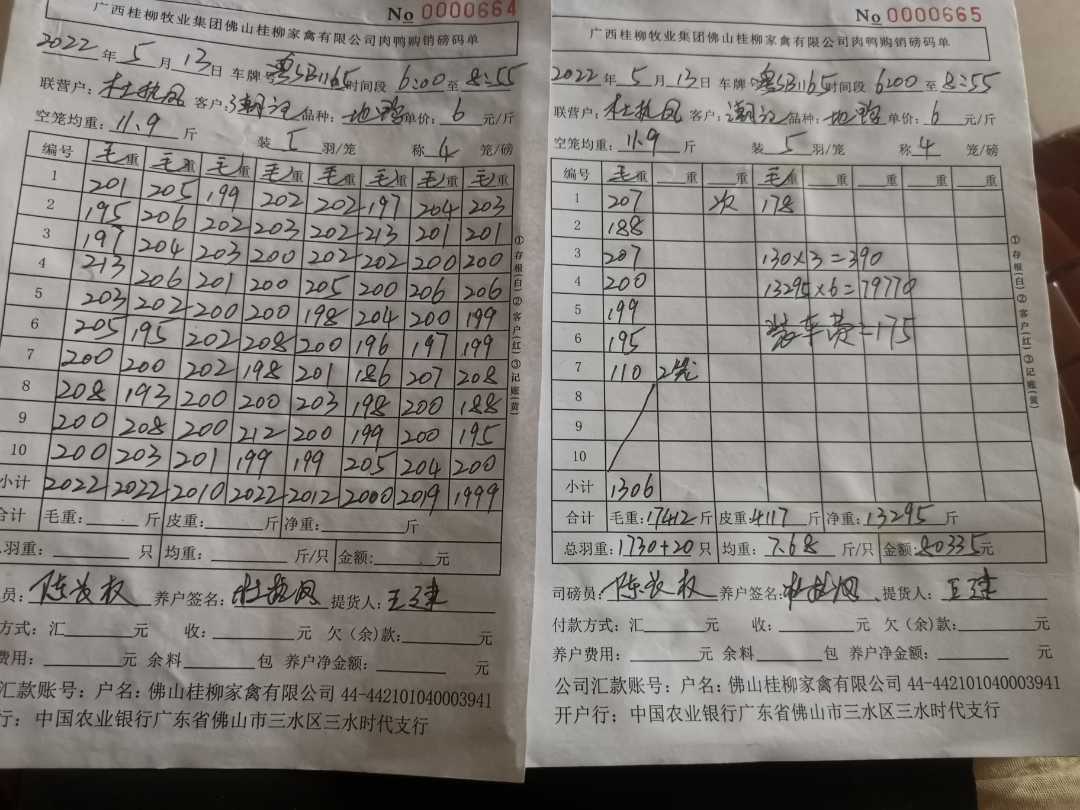 No 0000664
广西桂柳牧业集团佛山桂柳家禽有限公司肉鸭购销磅码单
2022 年 5 月 13 日 车牌 粤SB1165 时间段 6:00 至 8:55
联营户: 杜 凤 客户: 潮 品种: 单价: 6 元/斤
空笼均重: 11.9 斤 装 5 羽/笼 称 4 笼/磅
编号 毛重 毛重 毛重 毛重 毛重 毛重 毛重 毛重
1 201 205 199 202 202 197 204 203
2 195 206 202 203 202 213 201 201
3 197 204 203 200 202 202 200 200
4 213 206 201 200 205 200 206 206
5 203 202 200 200 198 204 200 199
6 205 195 202 208 200 196 197 199
7 200 200 202 198 201 186 207 208
8 208 193 200 200 203 198 200 188
9 200 208 200 212 200 199 200 195
10 200 203 201 199 199 205 204 200
小计 2022 2022 2010 2022 2012 2000 2019 1999
合计 毛重: 斤 皮重: 斤 净重: 斤
羽重: 只 均重: 斤/只 金额: 元
员: 陈 权 养户签名: 杜 凤 提货人: 王建
方式: 汇 元 收: 元 欠(余)款: 元
费用: 元 余料 包 养户净金额: 元
汇款账号: 户名: 佛山桂柳家禽有限公司 44-442101040003941
行: 中国农业银行广东省佛山市三水区三水时代支行
①存根(白)②客户(红)③记账(黄)
No 0000665
广西桂柳牧业集团佛山桂柳家禽有限公司肉鸭购销磅码单
2022 年 5 月 13 日 车牌 粤SB1165 时间段 6:00 至 8:55
联营户: 杜 凤 客户: 潮 品种: 单价: 6 元/斤
空笼均重: 11.9 斤 装 5 羽/笼 称 4 笼/磅
编号 毛重 重 重 毛重 重 重 重
1 207 次 178
2 188
3 207 130×3=390
4 200 13295×6=79770
5 199
6 195 装车费=175
7 110 2笼
8
9
10
小计 1306
合计 毛重: 17412 斤 皮重: 4117 斤 净重: 13295 斤
总羽重: 1730+20 只 均重: 7.68 斤/只 金额: 80335 元
司磅员: 陈 权 养户签名: 杜 凤 提货人: 王建
付款方式: 汇 元 收: 元 欠(余)款: 元
养户费用: 元 余料 包 养户净金额: 元
公司汇款账号: 户名: 佛山桂柳家禽有限公司 44-442101040003941
开户行: 中国农业银行广东省佛山市三水区三水时代支行
①存根(白)②客户(红)③记账(黄)